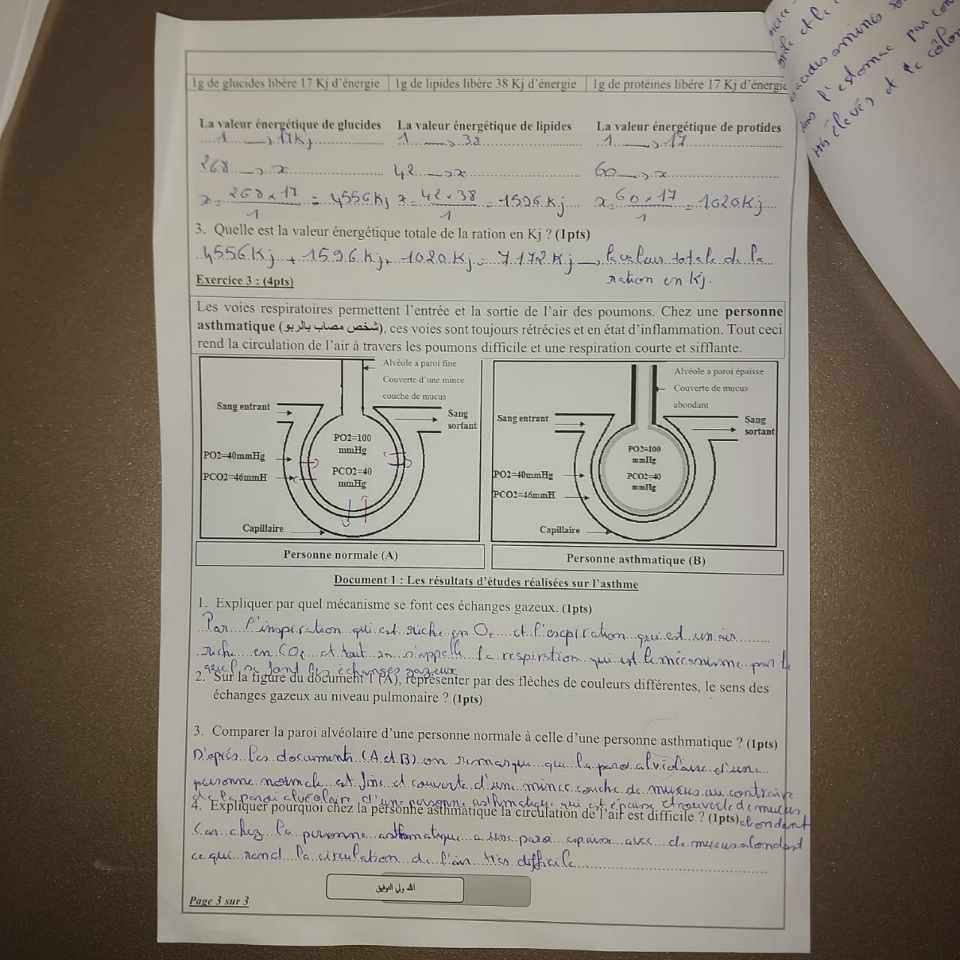 1g de glucides libère 17 Kj d'énergie 1g de lipides libère 38 Kj d'énergie 1g de protéines libère 17 Kj d'énergie
La valeur énergétique de glucides La valeur énergétique de lipides La valeur énergétique de protides
1 → 17Kj 1 → 38 1 → 17
268 → x 42 → x 60 → x
x = 268 x 17 / 1 = 4556 Kj x = 42 x 38 / 1 = 1596 Kj x = 60 x 17 / 1 = 1020 Kj
3. Quelle est la valeur énergétique totale de la ration en Kj ? (1pts)
4556 Kj + 1596 Kj + 1020 Kj = 7172 Kj → la valeur totale de la
ration en Kj.
Exercice 3 : (4pts)
Les voies respiratoires permettent l'entrée et la sortie de l'air des poumons. Chez une personne
asthmatique (شخص مصاب بالربو), ces voies sont toujours rétrécies et en état d'inflammation. Tout ceci
rend la circulation de l'air à travers les poumons difficile et une respiration courte et sifflante.
Alvéole a paroi fine
Couverte d'une mince
couche de mucus
Sang entrant
Sang
sortant
PO2=100
mmHg
PCO2=40
mmHg
PO2=40mmHg
PCO2=46mmH
Capillaire
Personne normale (A)
Alvéole a paroi épaisse
Couverte de mucus
abondant
Sang entrant
Sang
sortant
PO2=100
mmHg
PCO2=40
mmHg
PO2=40mmHg
PCO2=46mmH
Capillaire
Personne asthmatique (B)
Document 1 : Les résultats d'études réalisées sur l'asthme
1. Expliquer par quel mécanisme se font ces échanges gazeux. (1pts)
Par l'inspiration qui est riche en O2 et l'expiration qui est un air
riche en CO2 et tout s'appelle la respiration qui est le mécanisme par le
quel se font les échanges gazeux
2. Sur la figure du document 1 (A), représenter par des flèches de couleurs différentes, le sens des
échanges gazeux au niveau pulmonaire ? (1pts)
3. Comparer la paroi alvéolaire d'une personne normale à celle d'une personne asthmatique ? (1pts)
D'après les documents (A et B) on remarque que la paroi alvéolaire d'une
personne normale est fine et couverte d'une mince couche de mucus au contraire
de la paroi alvéolaire d'une personne asthmatique qui est épaisse et couverte de mucus
abondant
4. Expliquer pourquoi chez la personne asthmatique la circulation de l'air est difficile ? (1pts)
Car chez la personne asthmatique a une paroi épaisse avec de mucus abondant
ce qui rend la circulation de l'air très difficile
الله ولي التوفيق
Page 3 sur 3
acides aminés
l'estomac par
élevés et le côlon